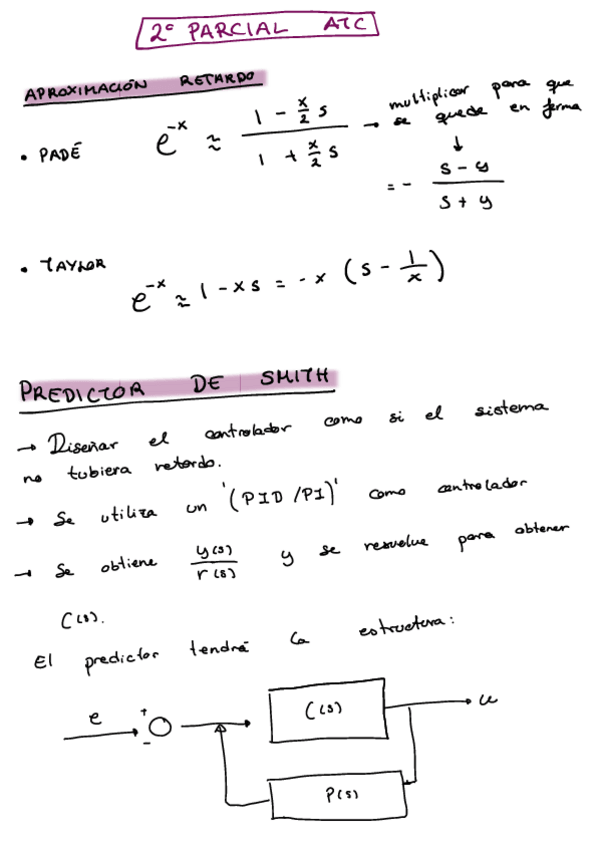 2º PARCIAL ATC
APROXIMACIÓN RETARDO
• PADÉ e^-x ≈ (1 - x/2 s) / (1 + x/2 s) → multiplicar para que
se quede en forma
↓
= - (s - y) / (s + y)
• TAYLOR
e^-x ≈ 1 - xs = -x (s - 1/x)
PREDICTOR DE SMITH
→ Diseñar el controlador como si el sistema
no tubiera retardo.
→ Se utiliza un '(PID/PI)' como controlador
→ Se obtiene y(s)/r(s) y se resuelve para obtener
C(s).
El predictor tendrá la estructura:
e + - C(s) u
P(s)